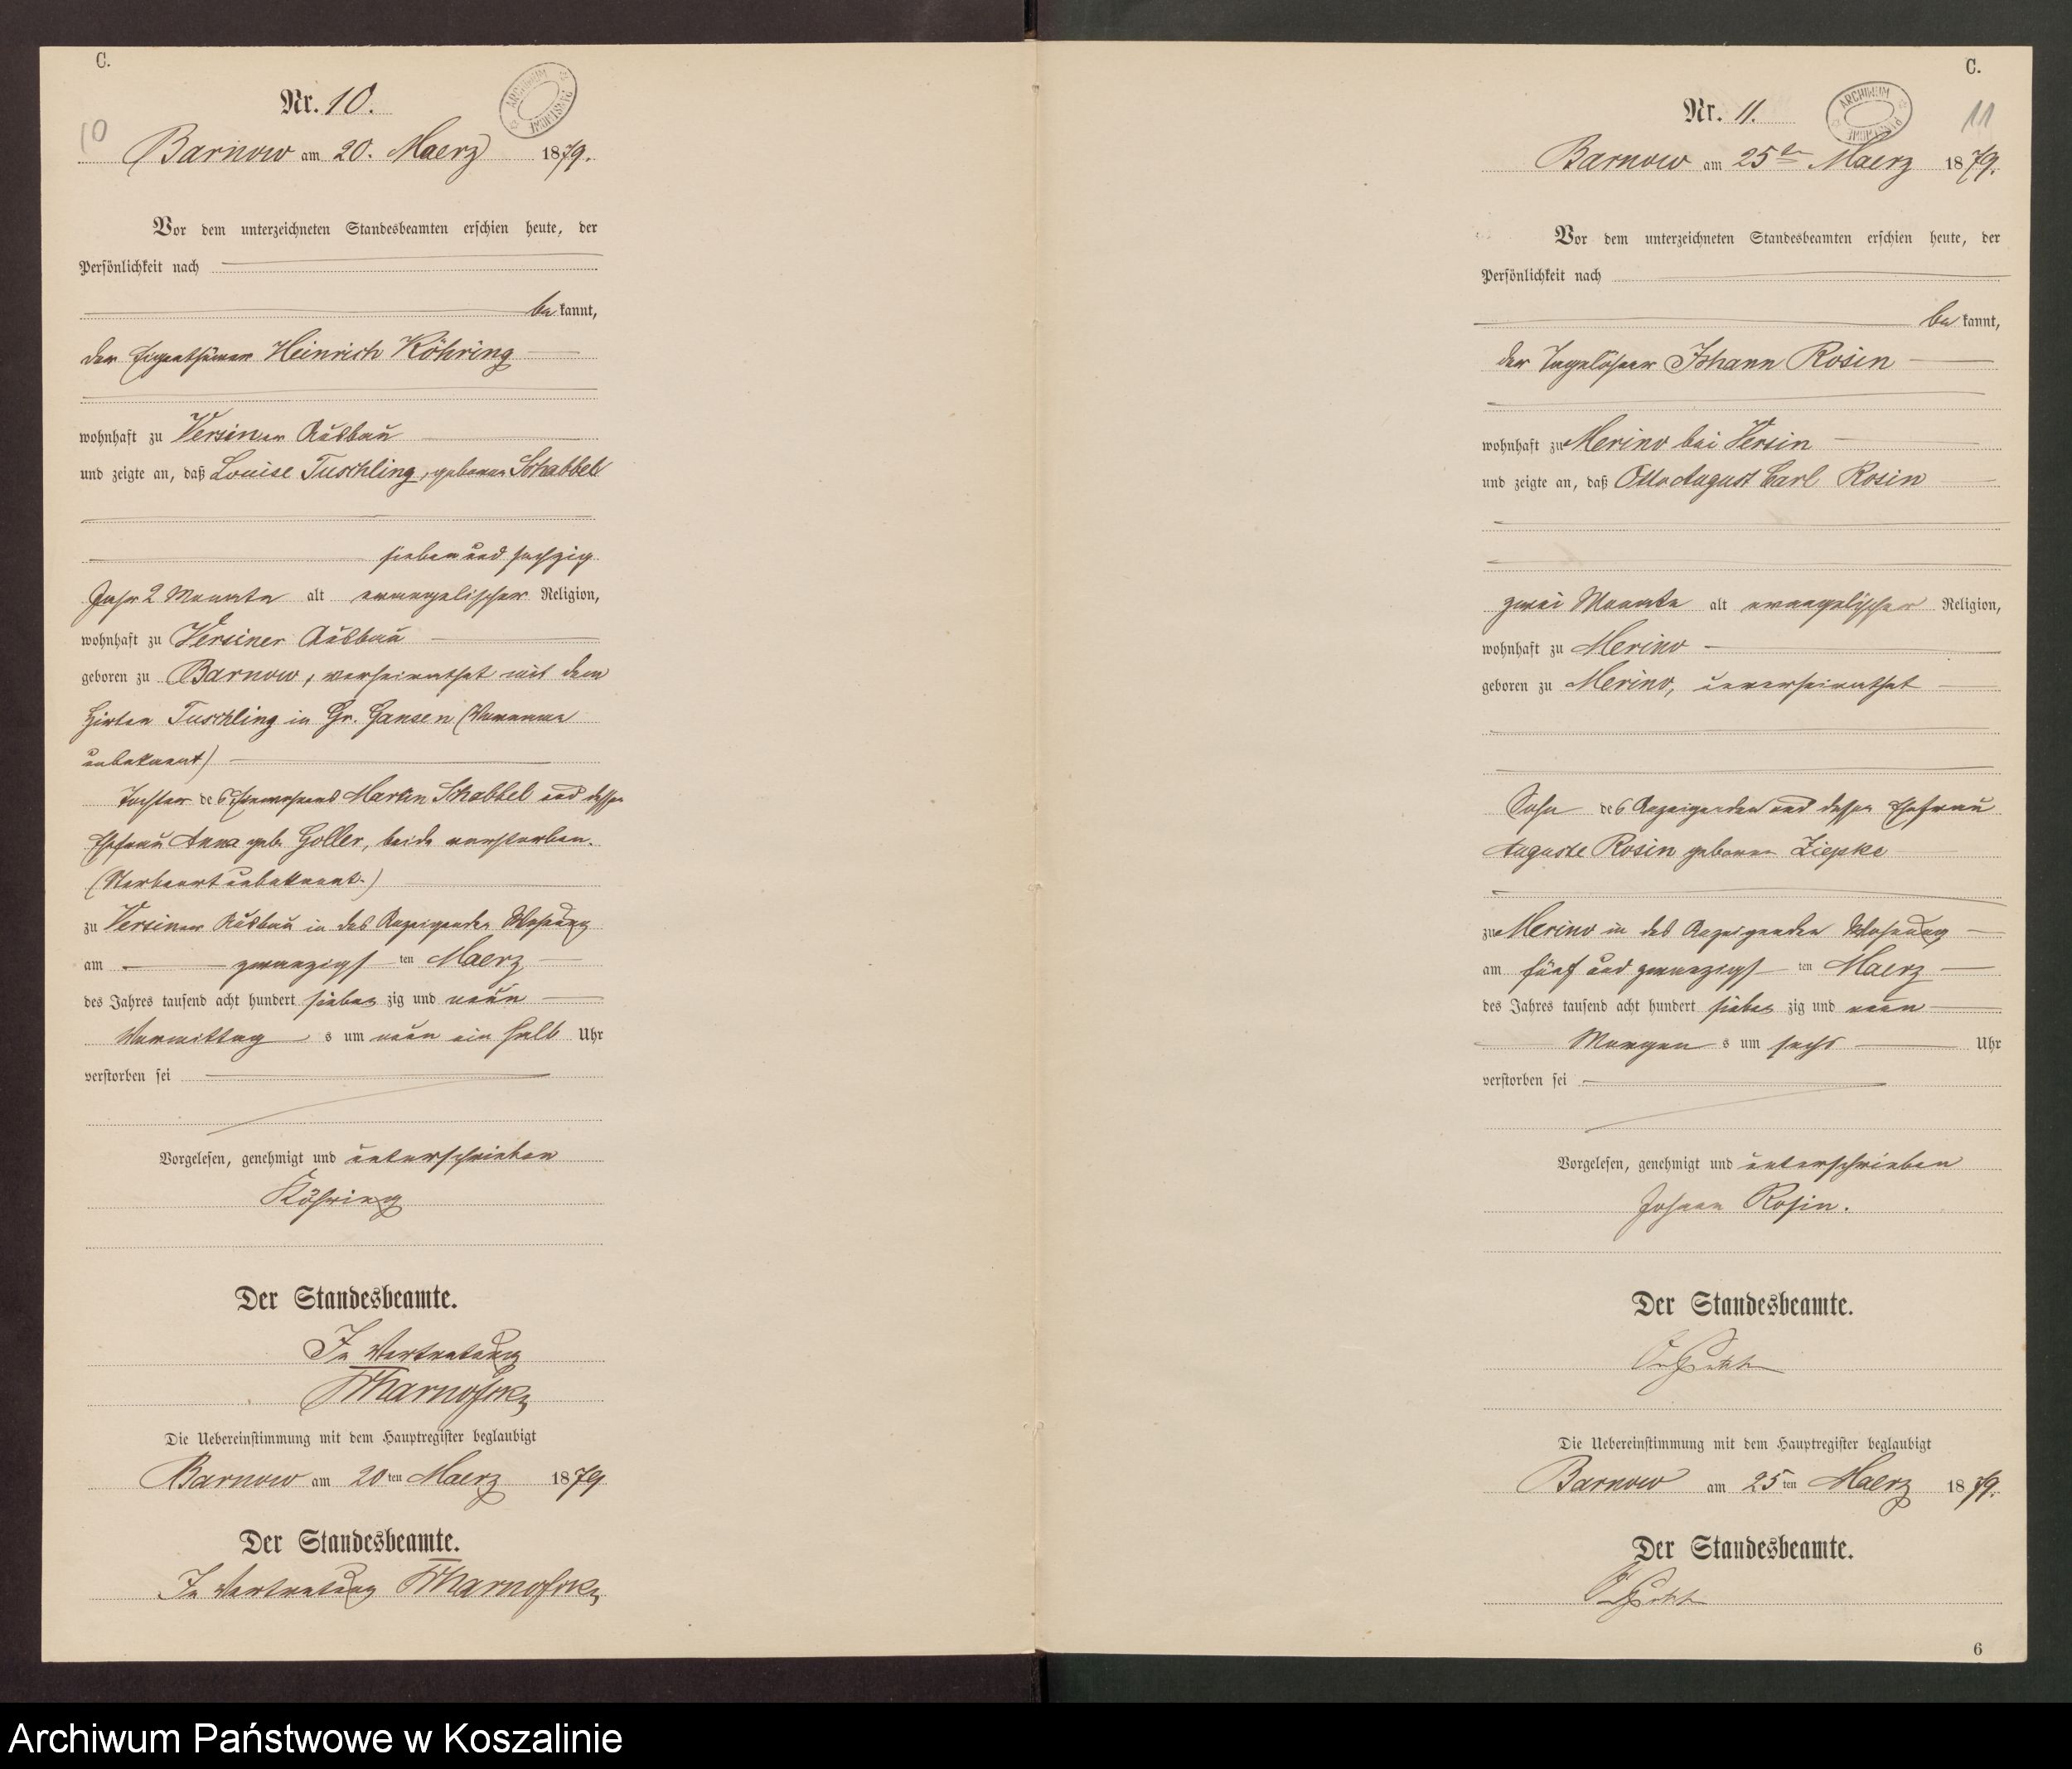 C.
Nr. 10.
10
ARCHIWUM
Barnow am 20. Maerz 1879.
Vor dem unterzeichneten Standesbeamten erschien heute, der
Persönlichkeit nach
bekannt,
der Eigenthümer Heinrich Köhring
wohnhaft zu Versiner Ausbau
und zeigte an, daß Louise Tuschling, geborene Schabbel
sieben und sechzig
Jahr 2 Monate alt evangelischer Religion,
wohnhaft zu Versiner Ausbau
geboren zu Barnow, verheirathet mit dem
Hirten Tuschling in Gr. Gansen (Vorname
unbekannt)
Tochter des Einwohners Martin Schabbel und dessen
Ehefrau Anna geb. Goller, beide verstorben.
(Sterbeort unbekannt.)
zu Versiner Ausbau in des Anzeigenden Wohnung
am zwanzigsten Maerz
des Jahres tausend acht hundert siebenzig und neun
Vormittags um neun ein halb Uhr
verstorben sei
Vorgelesen, genehmigt und unterschrieben
Köhring
Der Standesbeamte.
In Vertretung
Die Uebereinstimmung mit dem Hauptregister beglaubigt
Barnow am 20ten Maerz 1879
Der Standesbeamte.
In Vertretung
C.
Nr. 11.
11
ARCHIWUM
Barnow am 25ten Maerz 1879.
Vor dem unterzeichneten Standesbeamten erschien heute, der
Persönlichkeit nach
bekannt,
der Tagelöhner Johann Rosin
wohnhaft zu Merino bei Versin
und zeigte an, daß Otto August Carl Rosin
zwei Monate alt evangelischer Religion,
wohnhaft zu Merino
geboren zu Merino, unverheirathet
Sohn des Anzeigenden und dessen Ehefrau
Auguste Rosin geborene Ziepke
zu Merino in des Anzeigenden Wohnung
am fünf und zwanzigsten Maerz
des Jahres tausend acht hundert siebenzig und neun
Morgens um sechs Uhr
verstorben sei
Vorgelesen, genehmigt und unterschrieben
Johann Rosin.
Der Standesbeamte.
Die Uebereinstimmung mit dem Hauptregister beglaubigt
Barnow am 25ten Maerz 1879.
Der Standesbeamte.
6
Archiwum Państwowe w Koszalinie